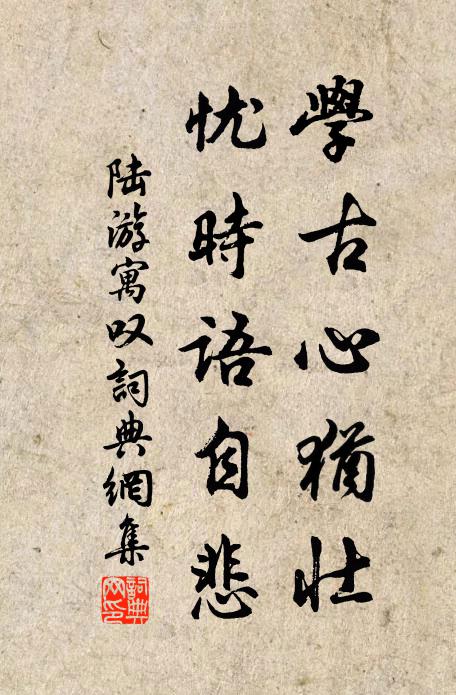 學古心猶壯
忧時語自悲
陆游寓叹詞典網集
詞典